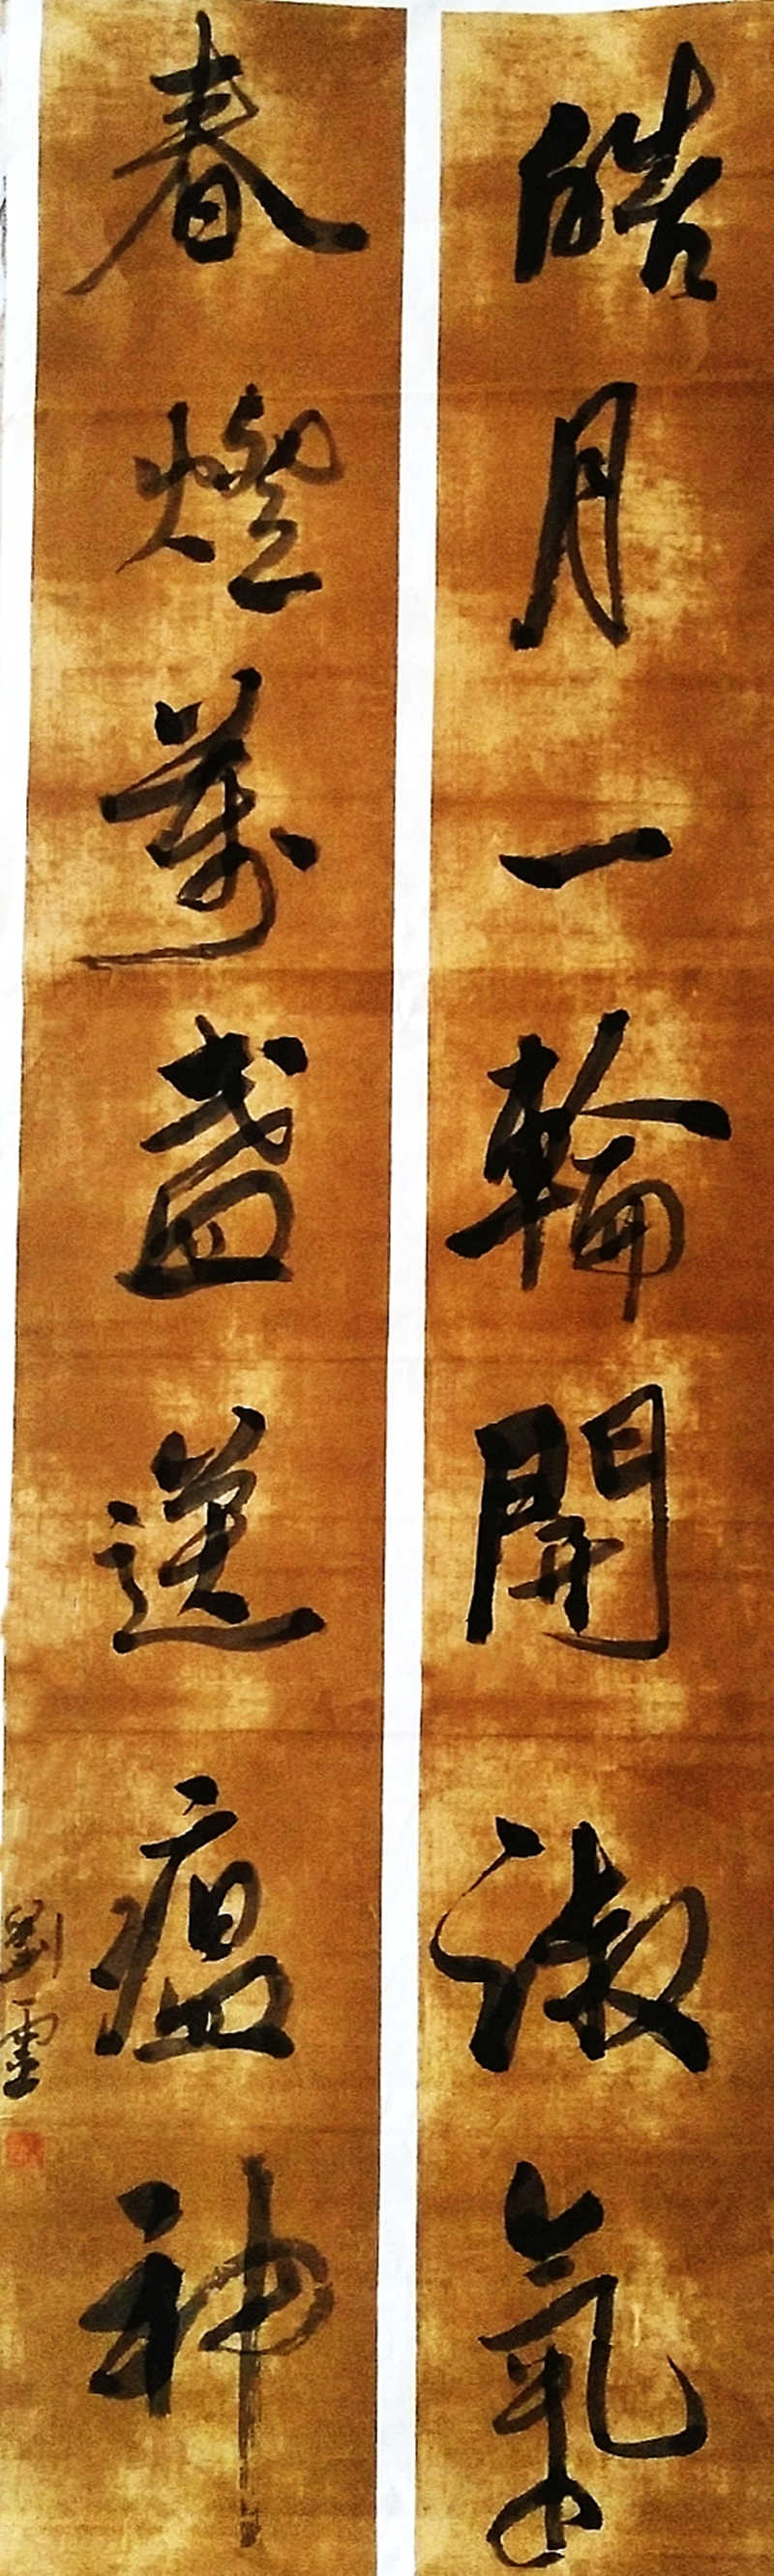 皓月一輪開淑氣
春燈萬盞送瘟神
劉靈